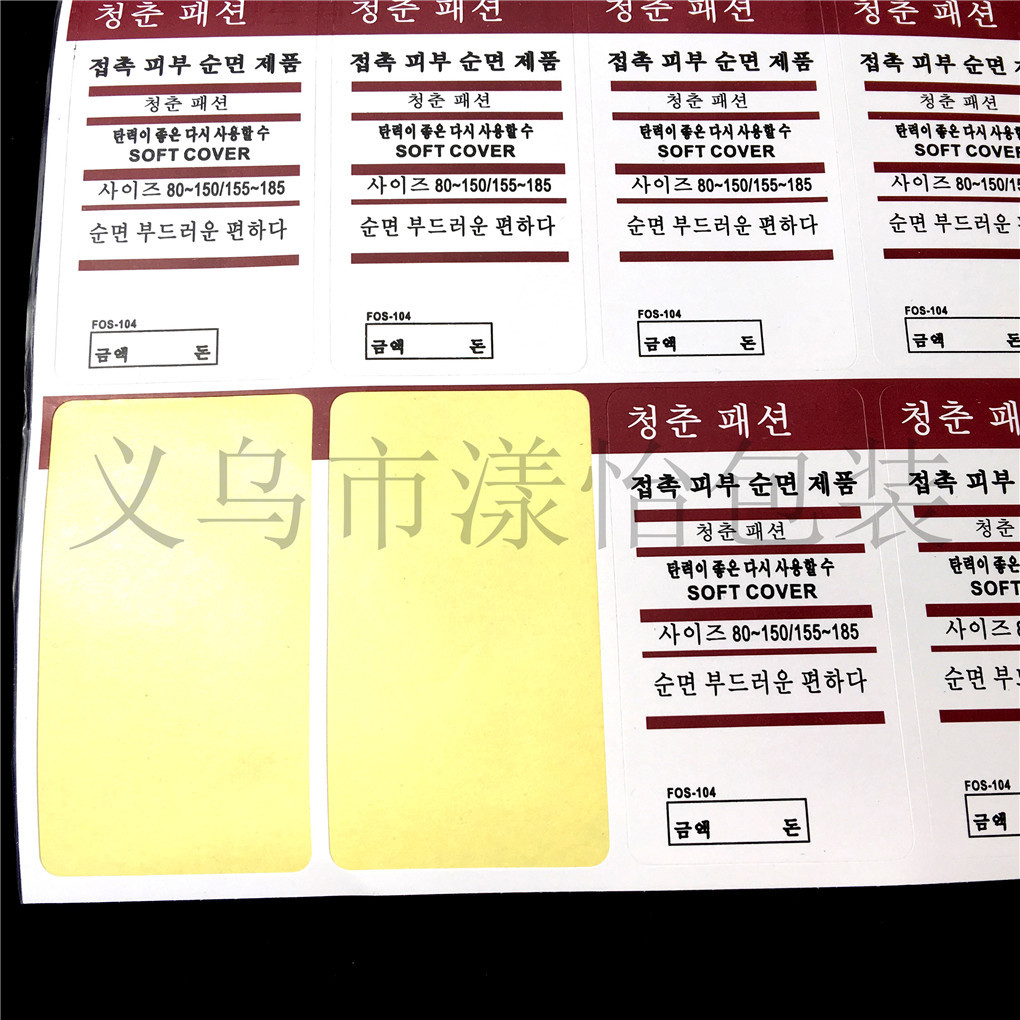 청춘 패션
접촉 피부 순면 제품
청춘 패션
탄력이 좋은 다시 사용할 수
SOFT COVER
사이즈 80~150/155~185
순면 부드러운 편하다
FOS-104
금액 돈
청춘 패션
접촉 피부 순면 제품
청춘 패션
탄력이 좋은 다시 사용할 수
SOFT COVER
사이즈 80~150/155~185
순면 부드러운 편하다
FOS-104
금액 돈
청춘 패션
접촉 피부 순면 제품
청춘 패션
탄력이 좋은 다시 사용할 수
SOFT COVER
사이즈 80~150/155~185
순면 부드러운 편하다
FOS-104
금액 돈
청춘 패션
접촉 피부 순면
청춘 패션
탄력이 좋은 다시 사용할 수
SOFT COVER
사이즈 80~150/15
순면 부드러운
FOS-104
금액 돈
청춘 패션
접촉 피부 순면 제품
청춘 패션
탄력이 좋은 다시 사용할 수
SOFT COVER
사이즈 80~150/155~185
순면 부드러운 편하다
FOS-104
금액 돈
청춘
접촉 피부
청춘
탄력이 좋은
SOFT
사이즈
순면
FOS-104
금액
义乌市漾怡包装